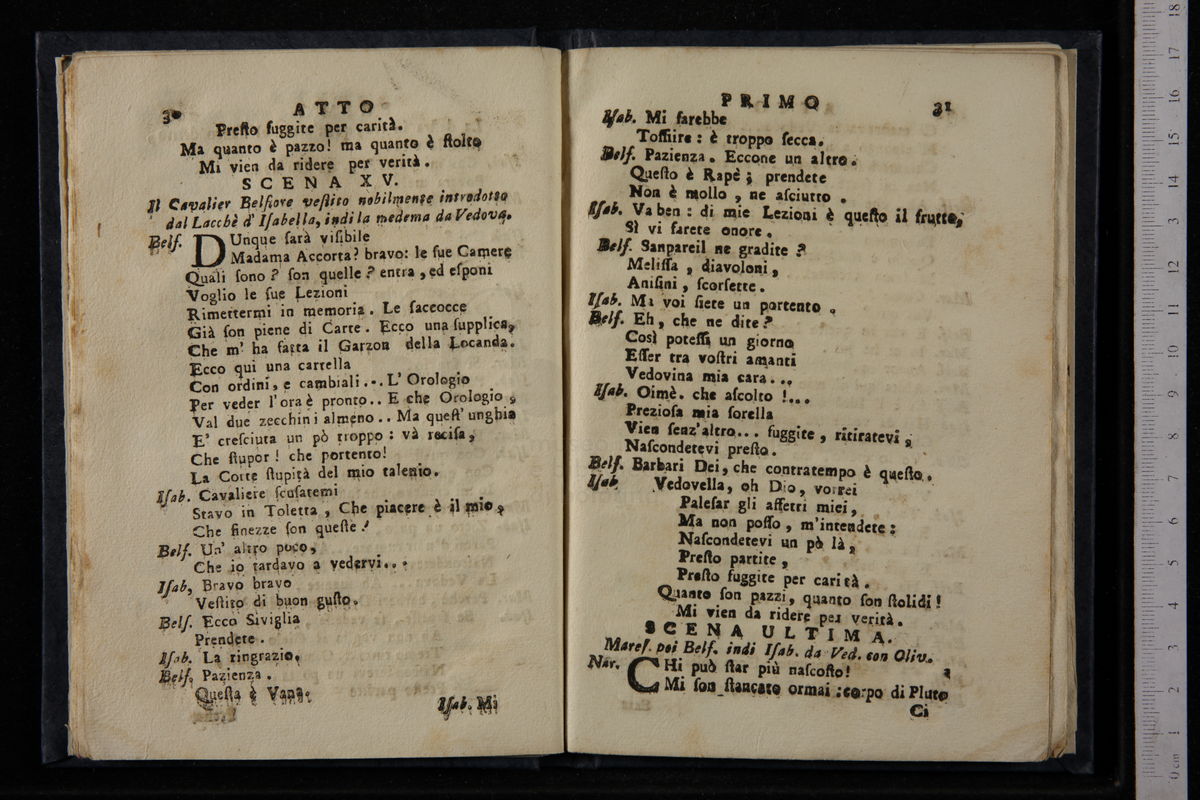 30 ATTO
Presto fuggite per carità.
Ma quanto è pazzo! ma quanto è stolto
Mi vien da ridere per verità.
SCENA XV.
Il Cavalier Belfiore vestito nobilmente introdotto
dal Lacchè d' Isabella, indi la medema da Vedova.
Belf. DUnque sarà visibile
Madama Accorta? bravo: le sue Camere
Quali sono? son quelle? entra, ed esponi
Voglio le sue Lezioni
Rimettermi in memoria. Le saccocce
Già son piene di Carte. Ecco una supplica,
Che m' ha fatta il Garzon della Locanda.
Ecco qui una cartella
Con ordini, e cambiali... L' Orologio
Per veder l'ora è pronto.. E che Orologio,
Val due zecchini almeno.. Ma quest' unghia
E' cresciuta un pò troppo: và recisa,
Che stupor! che portento!
La Corte stupità del mio talento.
Isab. Cavaliere scusatemi
Stavo in Toletta, Che piacere è il mio,
Che finezze son queste!
Belf. Un' altro poco,
Che io tardavo a vedervi...
Isab, Bravo bravo
Vestito di buon gusto.
Belf. Ecco Siviglia
Prendete.
Isab. La ringrazio.
Belf. Pazienza.
Questa è Vana.
Isab. Mi
PRIMO 31
Isab. Mi sarebbe
Tossire: è troppo secca.
Belf. Pazienza. Eccone un altro.
Questo è Rapè; prendete
Non è mollo, ne asciutto.
Isab. Va ben: di mie Lezioni è questo il frutto,
Sì vi farete onore.
Belf. Sanpareil ne gradite?
Melissa, diavoloni,
Anisini, scorsette.
Isab. Ma voi siete un portento.
Belf. Eh, che ne dite?
Così potessi un giorno
Esser tra vostri amanti
Vedovina mia cara...
Isab. Oimè. che ascolto!...
Preziosa mia sorella
Vien senz'altro... fuggite, ritiratevi,
Nascondetevi presto.
Belf. Barbari Dei, che contratempo è questo.
Isab Vedovella, oh Dio, vorrei
Palesar gli affetti miei,
Ma non posso, m'intendete:
Nascondetevi un pò là,
Presto partite,
Presto fuggite per carità.
Quanto son pazzi, quanto son stolidi!
Mi vien da ridere per verità.
SCENA ULTIMA.
Mares. poi Belf. indi Isab. da Ved. con Oliv.
Nar. CHi può star più nascosto!
Mi son stancato ormai: corpo di Pluto
Ci